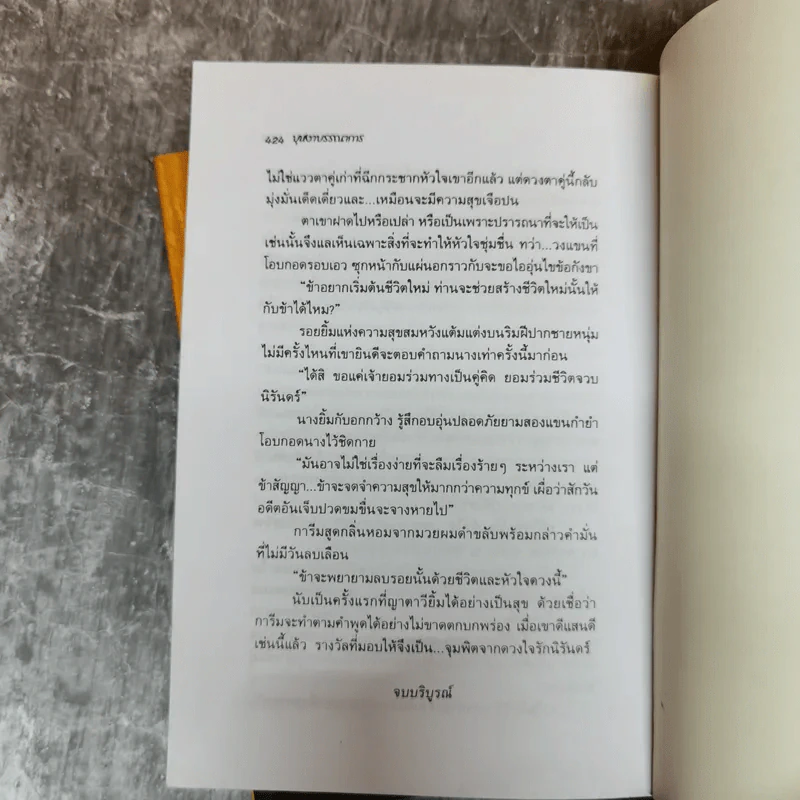 424 บุหงาบรรณาการ
ไม่ใช่แววตาคู่เก่าที่ฉีกกระชากหัวใจเขาอีกแล้ว แต่ดวงตาคู่นี้กลับ
มุ่งมั่นเด็ดเดี่ยวและ...เหมือนจะมีความสุขเจือปน
ตาเขาฝาดไปหรือเปล่า หรือเป็นเพราะปรารถนาที่จะให้เป็น
เช่นนั้นจึงแลเห็นเฉพาะสิ่งที่จะทำให้หัวใจชุ่มชื่น ทว่า...วงแขนที่
โอบกอดรอบเอว ซุกหน้ากับแผ่นอกราวกับจะขอไออุ่นไขข้อกังขา
“ข้าอยากเริ่มต้นชีวิตใหม่ ท่านจะช่วยสร้างชีวิตใหม่นั้นให้
กับข้าได้ไหม?”
รอยยิ้มแห่งความสุขสมหวังแต้มแต่งบนริมฝีปากชายหนุ่ม
ไม่มีครั้งไหนที่เขายินดีจะตอบคำถามนางเท่าครั้งนี้มาก่อน
“ได้สิ ขอแค่เจ้ายอมร่วมทางเป็นคู่คิด ยอมร่วมชีวิตจวบ
นิรันดร์”
นางยิ้มกับอกกว้าง รู้สึกอบอุ่นปลอดภัยยามสองแขนกำยำ
โอบกอดนางไว้ชิดกาย
“มันอาจไม่ใช่เรื่องง่ายที่จะลืมเรื่องร้ายๆ ระหว่างเรา แต่
ข้าสัญญา...ข้าจะจดจำความสุขให้มากกว่าความทุกข์ เผื่อว่าสักวัน
อดีตอันเจ็บปวดขมขื่นจะจางหายไป”
การีมสูดกลิ่นหอมจากมวยผมดำขลับพร้อมกล่าวคำมั่น
ที่ไม่มีวันลบเลือน
“ข้าจะพยายามลบรอยนั้นด้วยชีวิตและหัวใจดวงนี้”
นับเป็นครั้งแรกที่ญาตาวียิ้มได้อย่างเป็นสุข ด้วยเชื่อว่า
การีมจะทำตามคำพูดได้อย่างไม่ขาดตกบกพร่อง เมื่อเขาดีแสนดี
เช่นนี้แล้ว รางวัลที่มอบให้จึงเป็น...จุมพิตจากดวงใจรักนิรันดร์
จบบริบูรณ์